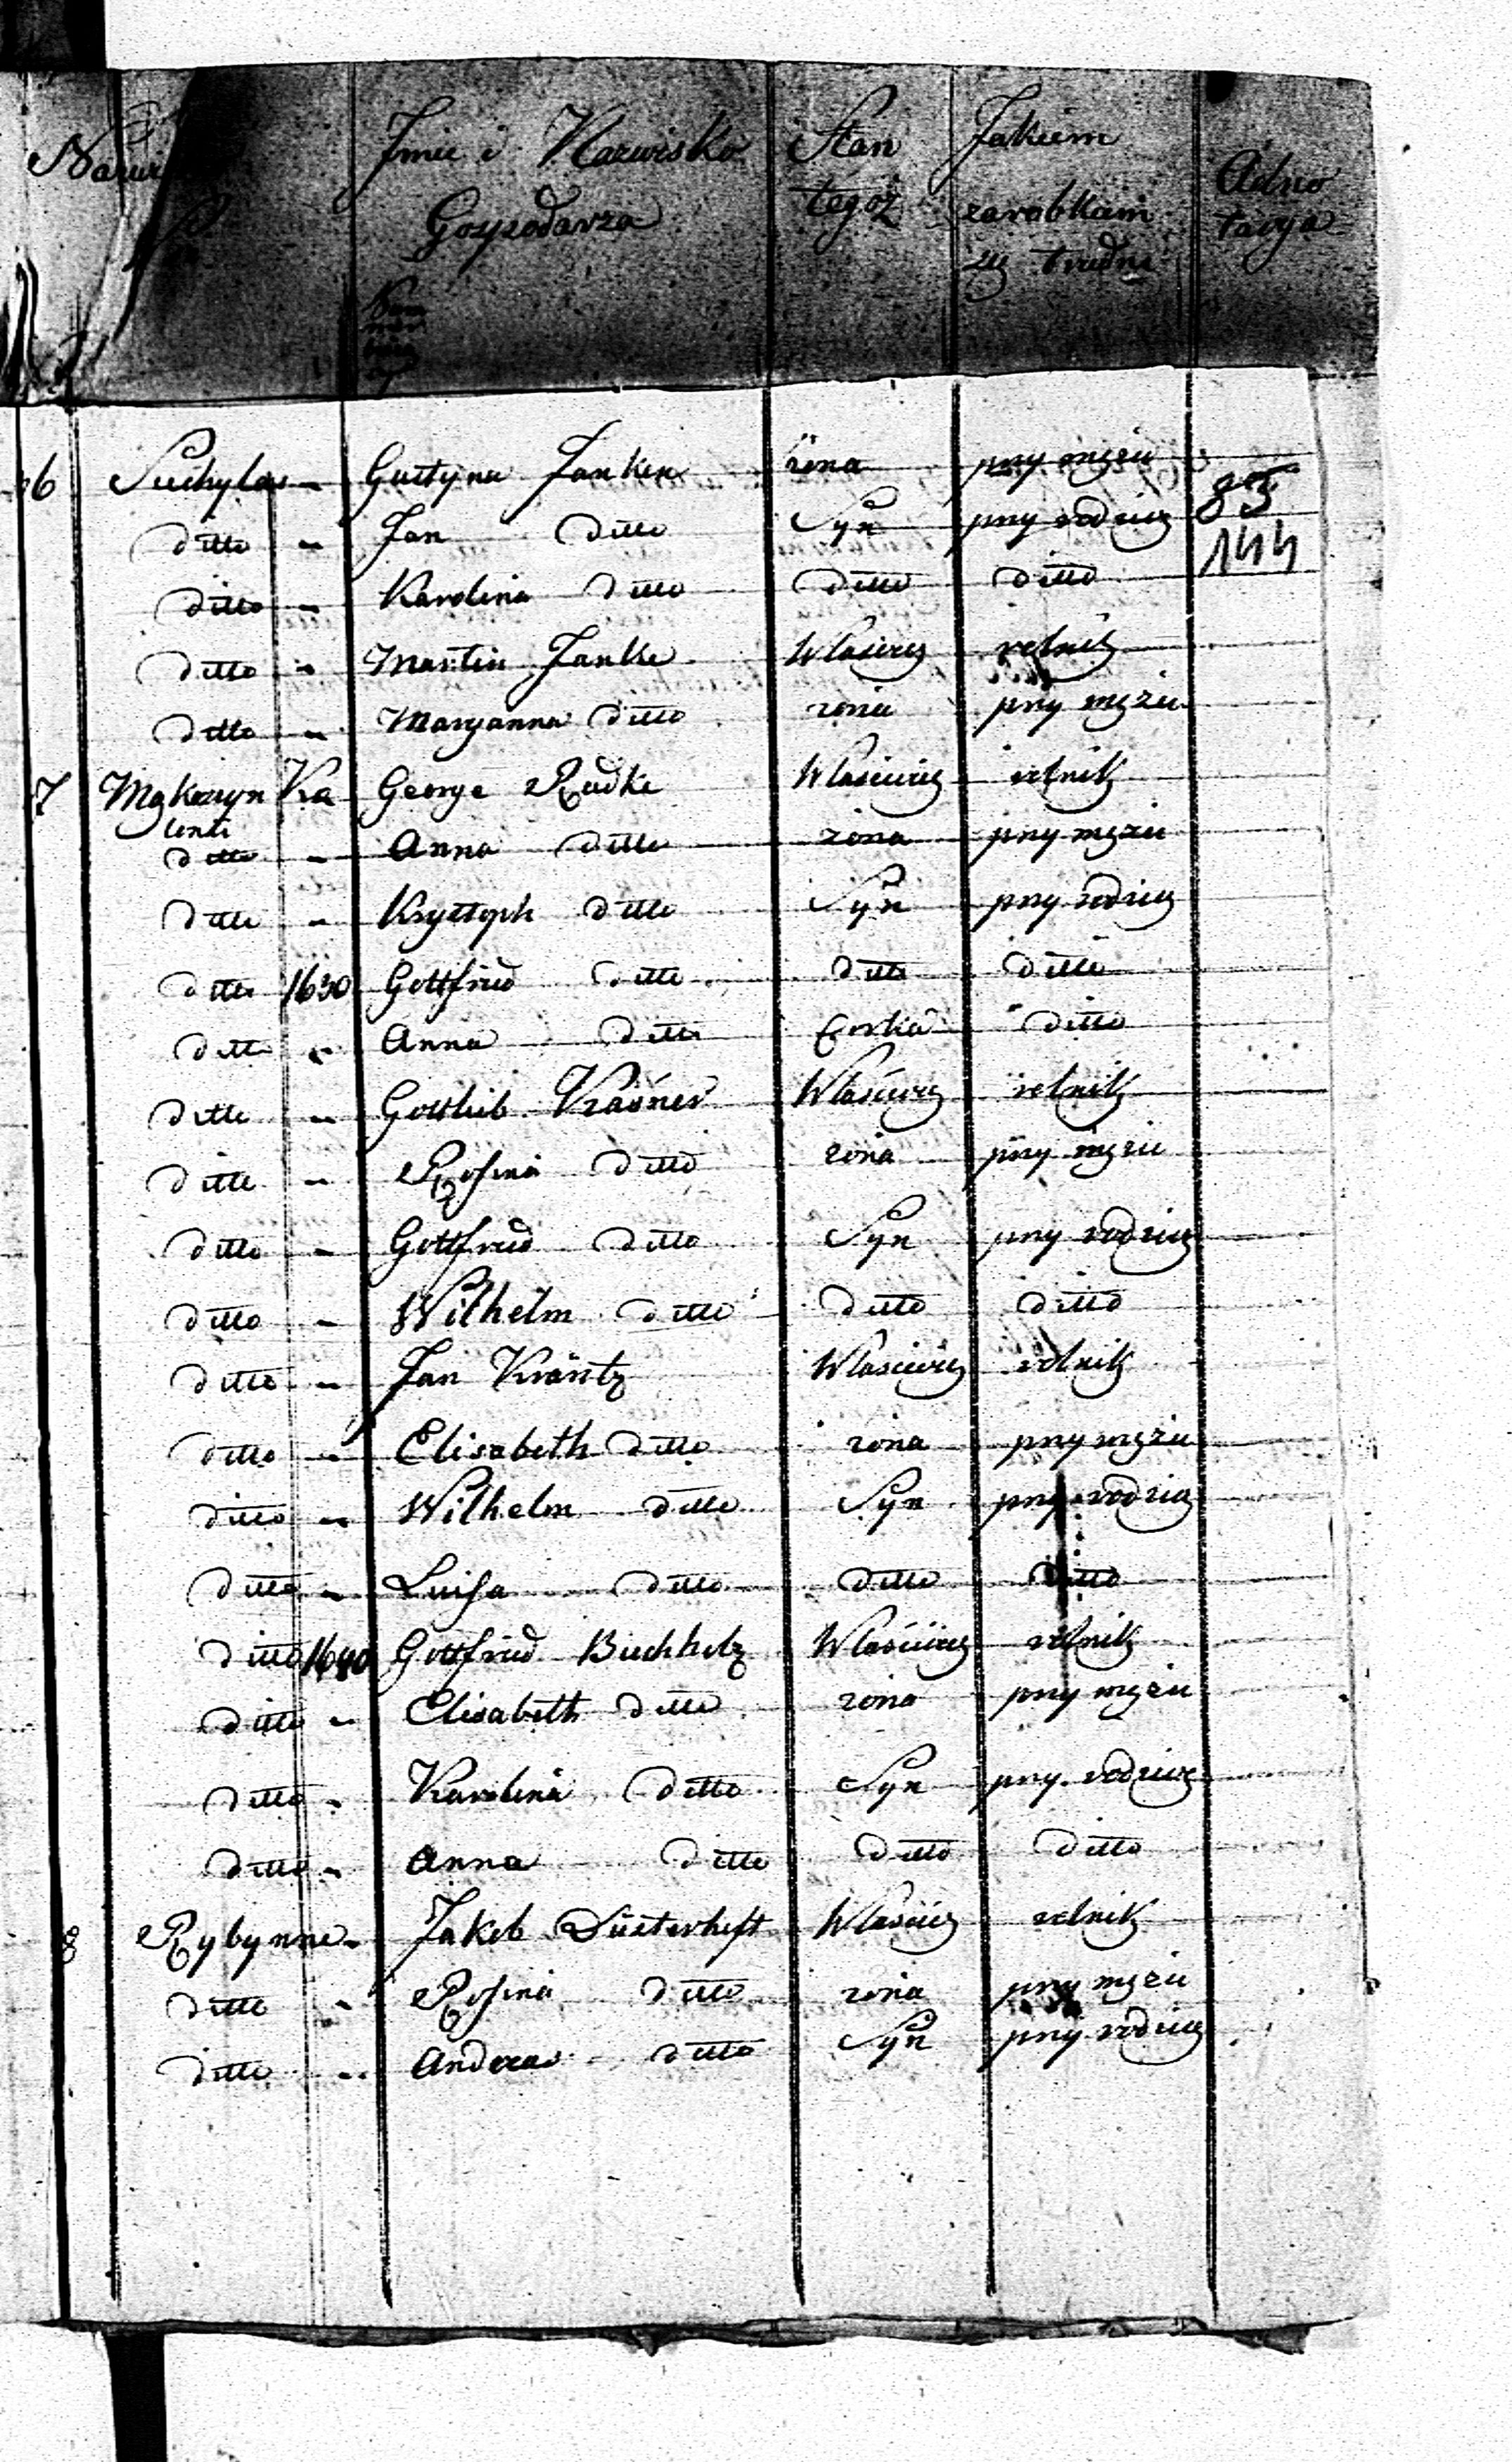 Imie i Nazwisko Gospodarza Stan tegoż Jakiem zarobkiem się trudni Adnotacya
6 Suchylas - Gustyna Janken żona przy mężu 85
ditto - Jan ditto Syn przy rodzicz 144
ditto - Karolina ditto ditto ditto
ditto - Martin Janke Właściciel rolnik
ditto - Maryanna ditto żona przy mężu
7 George Radke Właściciel rolnik
ditto - Anna ditto żona przy mężu
ditto - Krysttoph ditto Syn przy rodzicz
ditto 1630 Gottfried ditto ditto ditto
ditto - Anna ditto Corka ditto
ditto - Gottlieb Właściciel rolnik
ditto - Rosina ditto żona przy mężu
ditto - Gottfried ditto Syn przy rodzicz
ditto - Wilhelm ditto ditto ditto
ditto - Jan Krantz Właściciel rolnik
ditto - Elisabeth ditto żona przy mężu
ditto - Wilhelm ditto Syn przy rodzicz
ditto - Luisa ditto ditto ditto
ditto 1640 Gottfried Buchholz Właściciel rolnik
ditto - Elisabeth ditto żona przy mężu
ditto - Karolina ditto Syn przy rodzicz
ditto - Anna ditto ditto ditto
8 Rybynne - Jakob Düsterheft Właściciel rolnik
ditto - Rosina ditto żona przy mężu
ditto - Andreas ditto Syn przy rodzicz